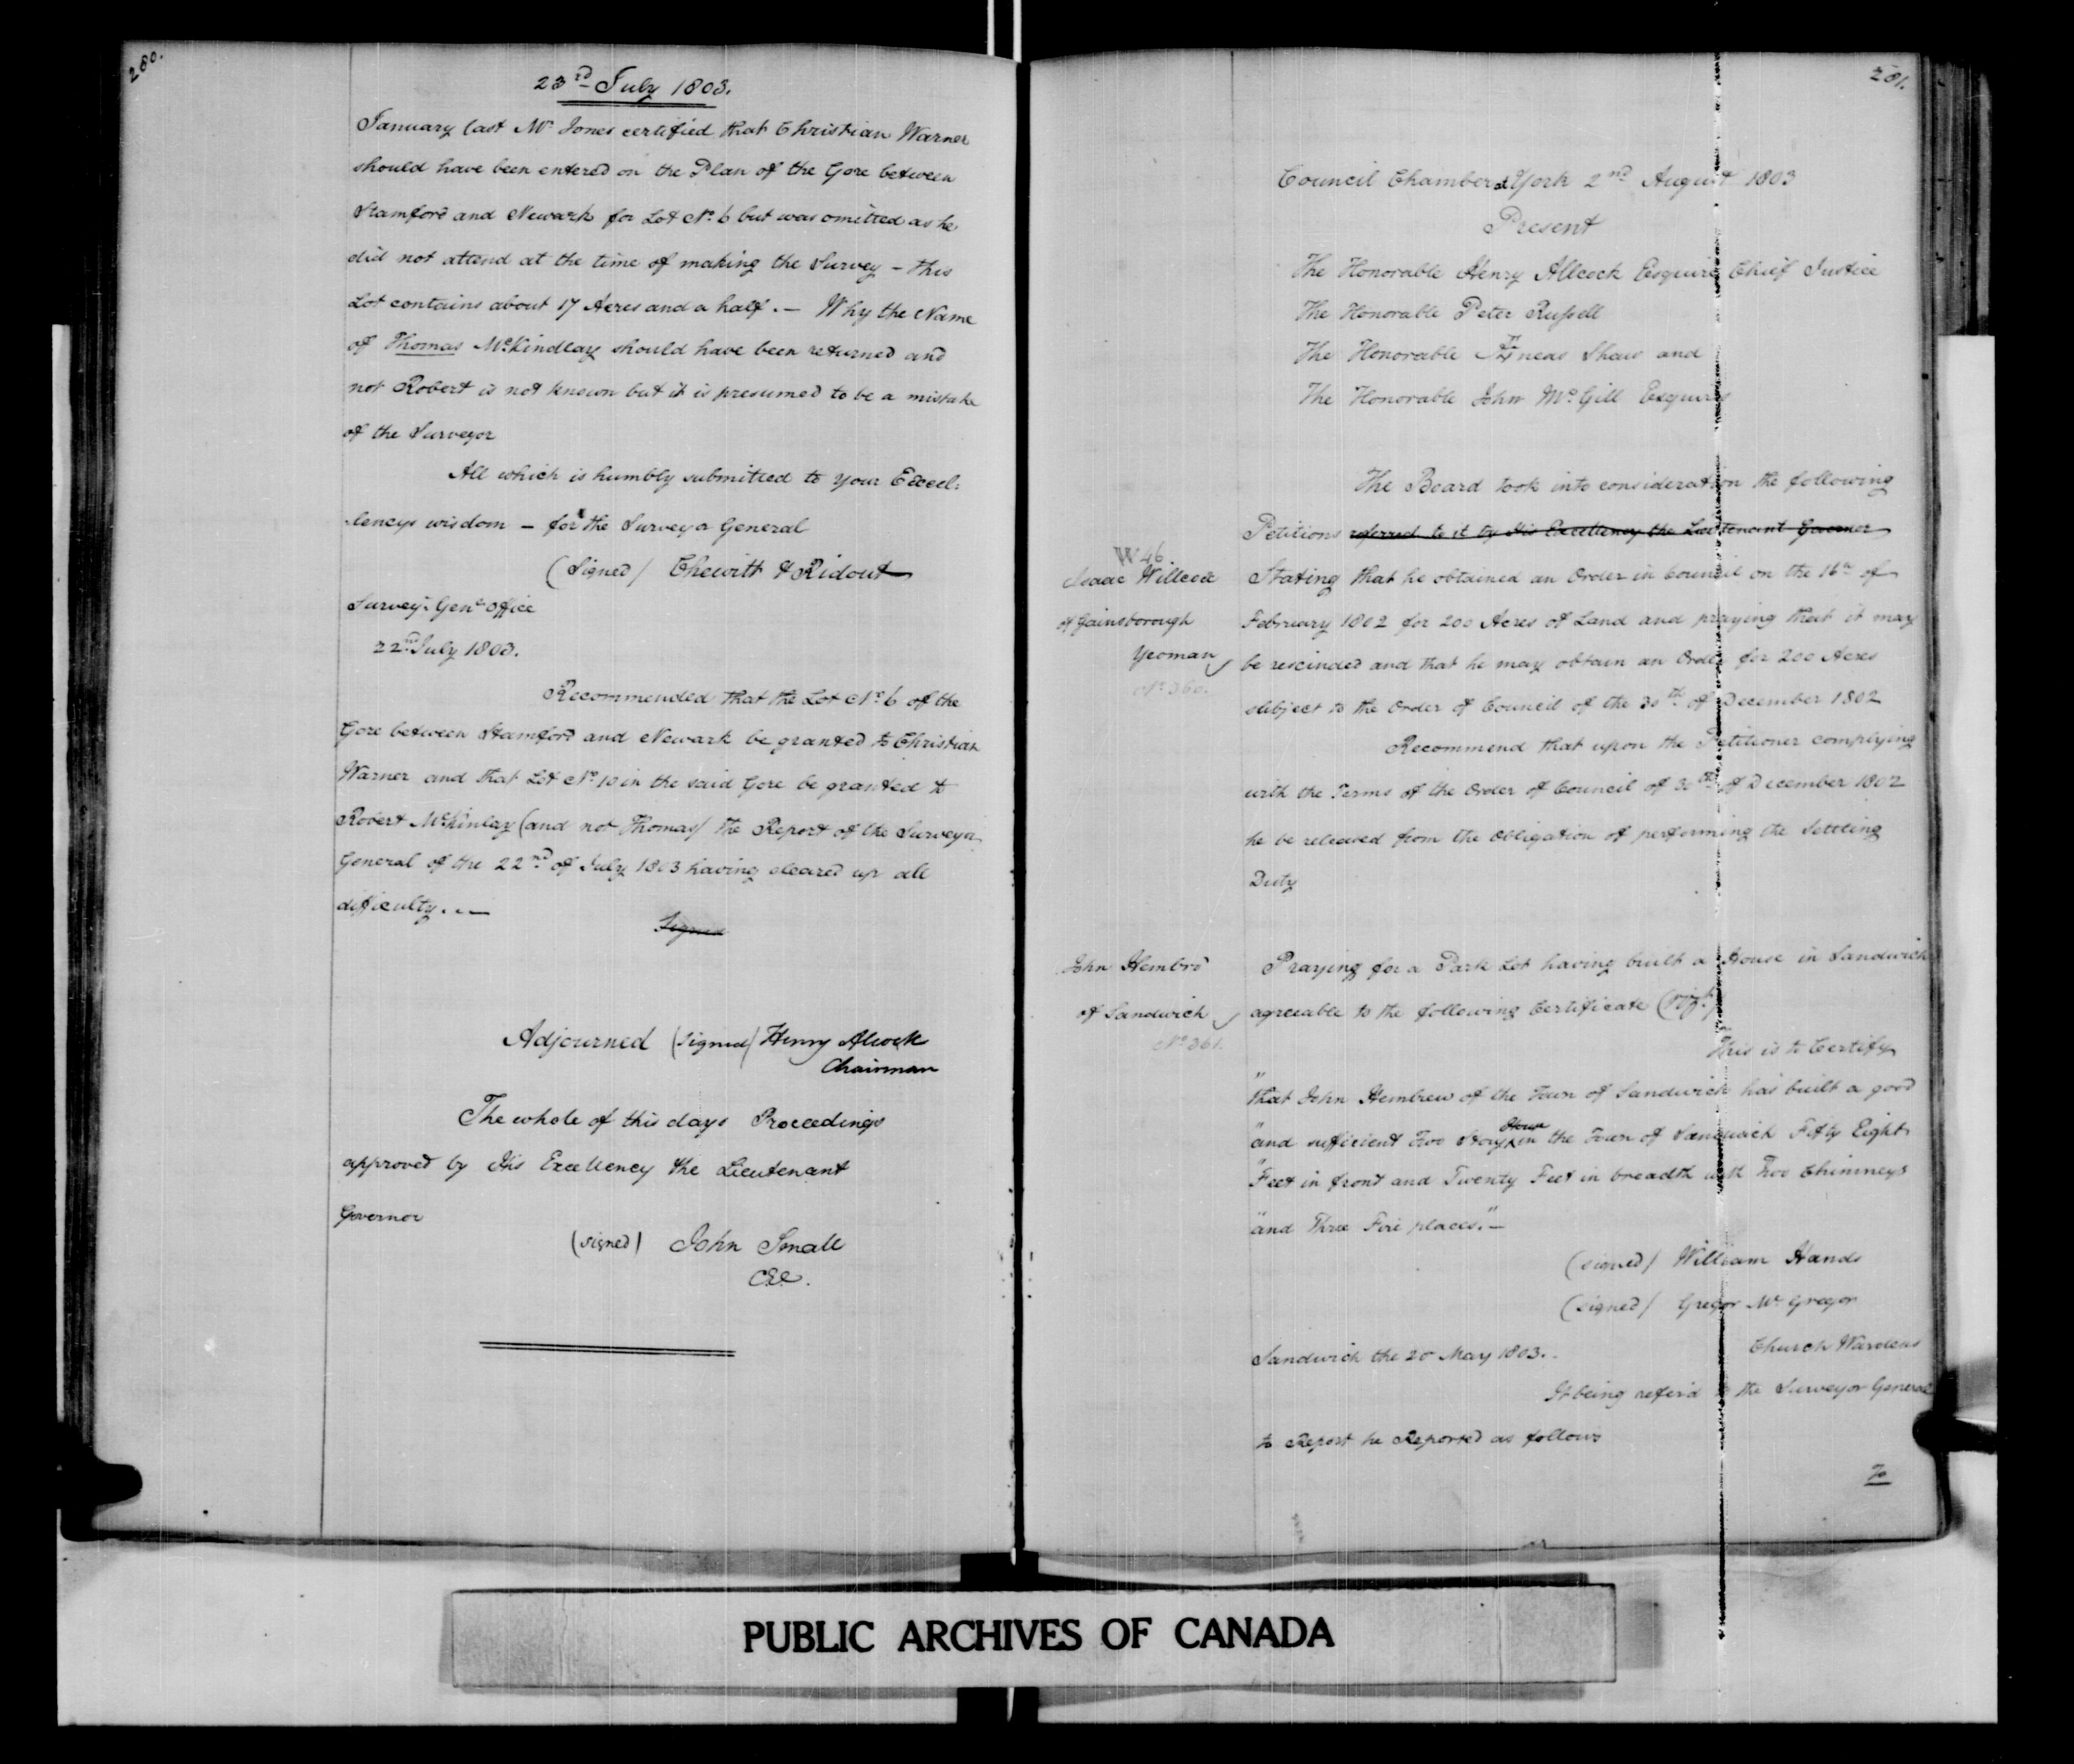 280.
23rd July 1803.
January last Mr Jones certified that Christian Warner
should have been entered on the Plan of the Gore between
Stamford and Newark for Lot No. 6 but was omitted as he
did not attend at the time of making the Survey – this
Lot contains about 17 Acres and a half. — Why the Name
of Thomas McKindlay should have been returned and
not Robert is not known but it is presumed to be a mistake
of the Surveyor
All which is humbly submitted to your Excel:
lencys wisdom – for the Surveyor General
(Signed) Chewitt & Ridout
Surveyr. Genl. Office
22nd July 1803.
Recommended that the Lot No. 6 of the
Gore between Stamford and Newark be granted to Christian
Warner and that Lot No. 10 in the said Gore be granted to
Robert McKinlay (and not Thomas) the Report of the Surveyor
General of the 22nd of July 1803 having cleared up all
difficulty. . —
Signed
Adjourned (signed) Henry Alcock
Chairman
The whole of this days Proceedings
approved by His Excellency the Lieutenant
Governor
(signed) John Small
C.E.C.
281.
Council Chamber at York 2nd August 1803
Present
The Honorable Henry Allcock Esquire Chief Justice
The Honorable Peter Russell
The Honorable Æneas Shaw and
The Honorable John McGill Esquires
The Board took into consideration the following
Petitions referred to it by His Excellency the Lieutenant Governor
W 46.
Isaac Willcox
of Gainsborough
Yeoman
No. 360.
Stating that he obtained an Order in Council on the 16th of
February 1802 for 200 Acres of Land and praying that it may
be rescinded and that he may obtain an Order for 200 Acres
subject to the Order of Council of the 30th of December 1802
Recommend that upon the Petitioner complying
with the Terms of the Order of Council of 30th of December 1802
he be released from the Obligation of performing the Settling
Duty
John Hembro
of Sandwich
No. 361.
Praying for a Park Lot having built a House in Sandwich
agreeable to the following Certificate (vizt.)
This is to Certify
"that John Hembrew of the Town of Sandwich has built a good
"and sufficient Two Story House in the Town of Sandwich Fifty Eight
"Feet in front and Twenty Feet in breadth with Two Chimneys
"and Three Fire places." —
(signed) William Hands
(signed) Gregor McGregor
Church Wardens
Sandwich the 20 May 1803. .
It being refer'd to the Surveyor General
to Report he Reported as follows
To
PUBLIC ARCHIVES OF CANADA